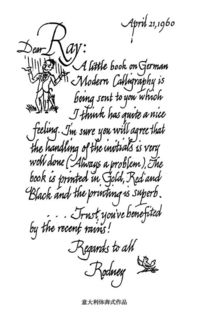 April 21, 1960
Dear Ray:
A little book on German
Modern Calligraphy is
being sent to you which
I think has quite a nice
feeling. I'm sure you will agree that
the handling of the initials is very
well done (Always a problem). The
book is printed in Gold, Red and
Black and the printing is superb.
. . . . Trust you've benefited
by the recent rains!
Regards to all
Rodney
意大利体书式作品